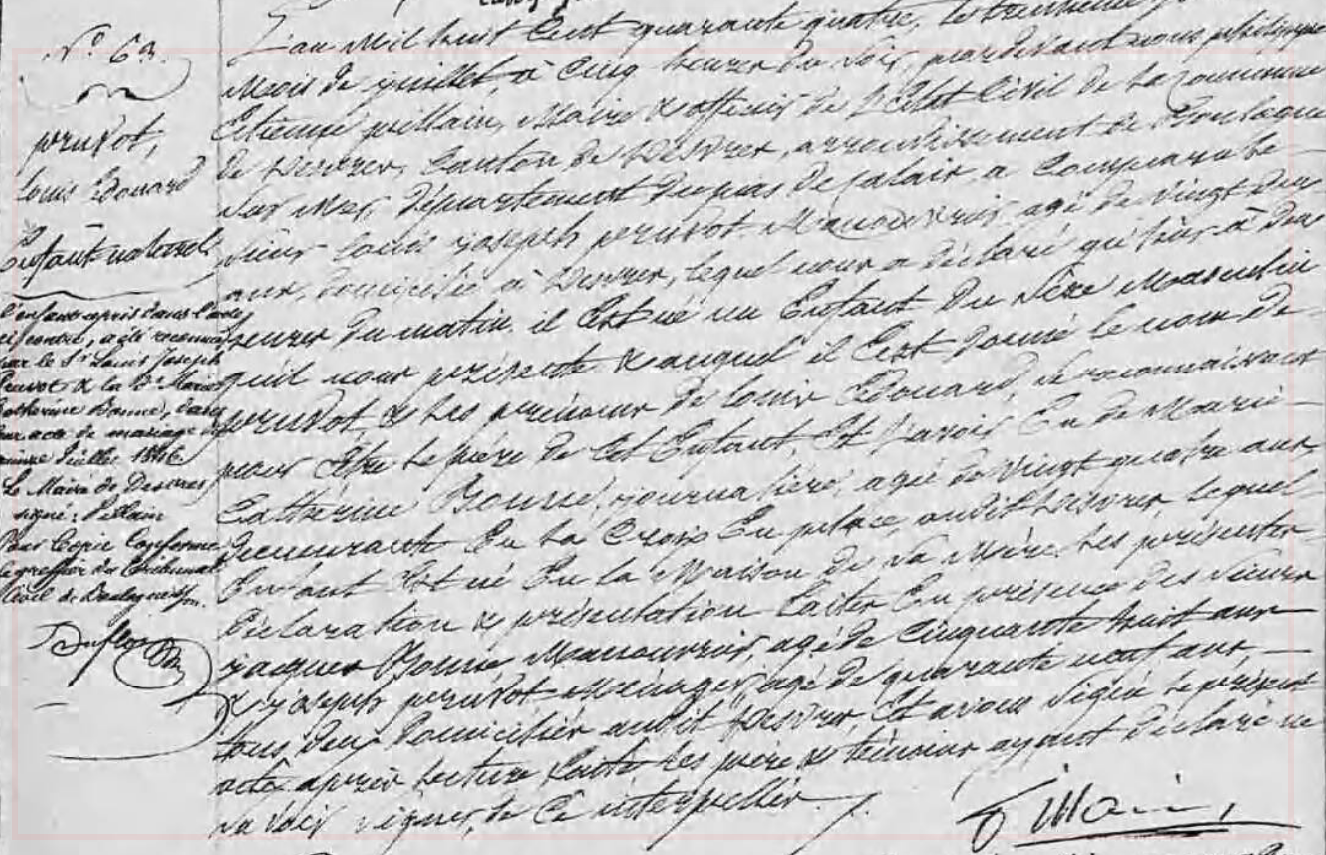 N° 63.
pruvot,
Louis Edouard
Enfant naturel
L'enfant repris dans l'acte
ci contre, a été reconnu
par le Sr Louis Joseph
Pruvot & la De Marie
Catherine Bonne, dans
leur acte de mariage du
quinze Juillet 1846
Le Maire de Desvres
signé: Pillain
Pour Copie Conforme
Le greffier du Tribunal
Civil de Boulogne
L'an Mil huit Cent quarante quatre, le
Mois de juillet, à Cinq heures du Soir, pardevant nous philippe
Etienne pillain, Maire & officier de L'Etat Civil de La Commune
de Desvres, Canton de Desvres, arrondissement de Boulogne
Sur Mer, Département du pas de Calais, a Comparu Le
Sieur Louis joseph pruvot Manouvrier, agé de vingt deux
ans, domicilié à Desvres, lequel nous a déclaré qu'hier à deux
heures du matin, il Est né un Enfant du Sexe Masculin
qu'il nous présente & auquel il Est donné le nom de
pruvot & Les prénoms de Louis Edouard, se reconnaissant
pour Etre Le père de Cet Enfant, Et L'avoir Eu de Marie
Catherine Bonne, journalière, agée de vingt quatre ans,
demeurante En La Croix En place, audit Desvres, Lequel
Enfant Est né En La Maison de Sa Mère. Les présentes
Déclaration & présentation faites En présence des Sieurs
jacques Bonne Manouvrier, agé de Cinquante huit ans
& joseph pruvot Ménager, agé de quarante neuf ans,
tous deux Domiciliés audit Desvres, Et avons Signé Le présent
acte après Lecture faite, Les père & témoins ayant déclaré ne
savoir signer, de Ce interpellés.
Pillain